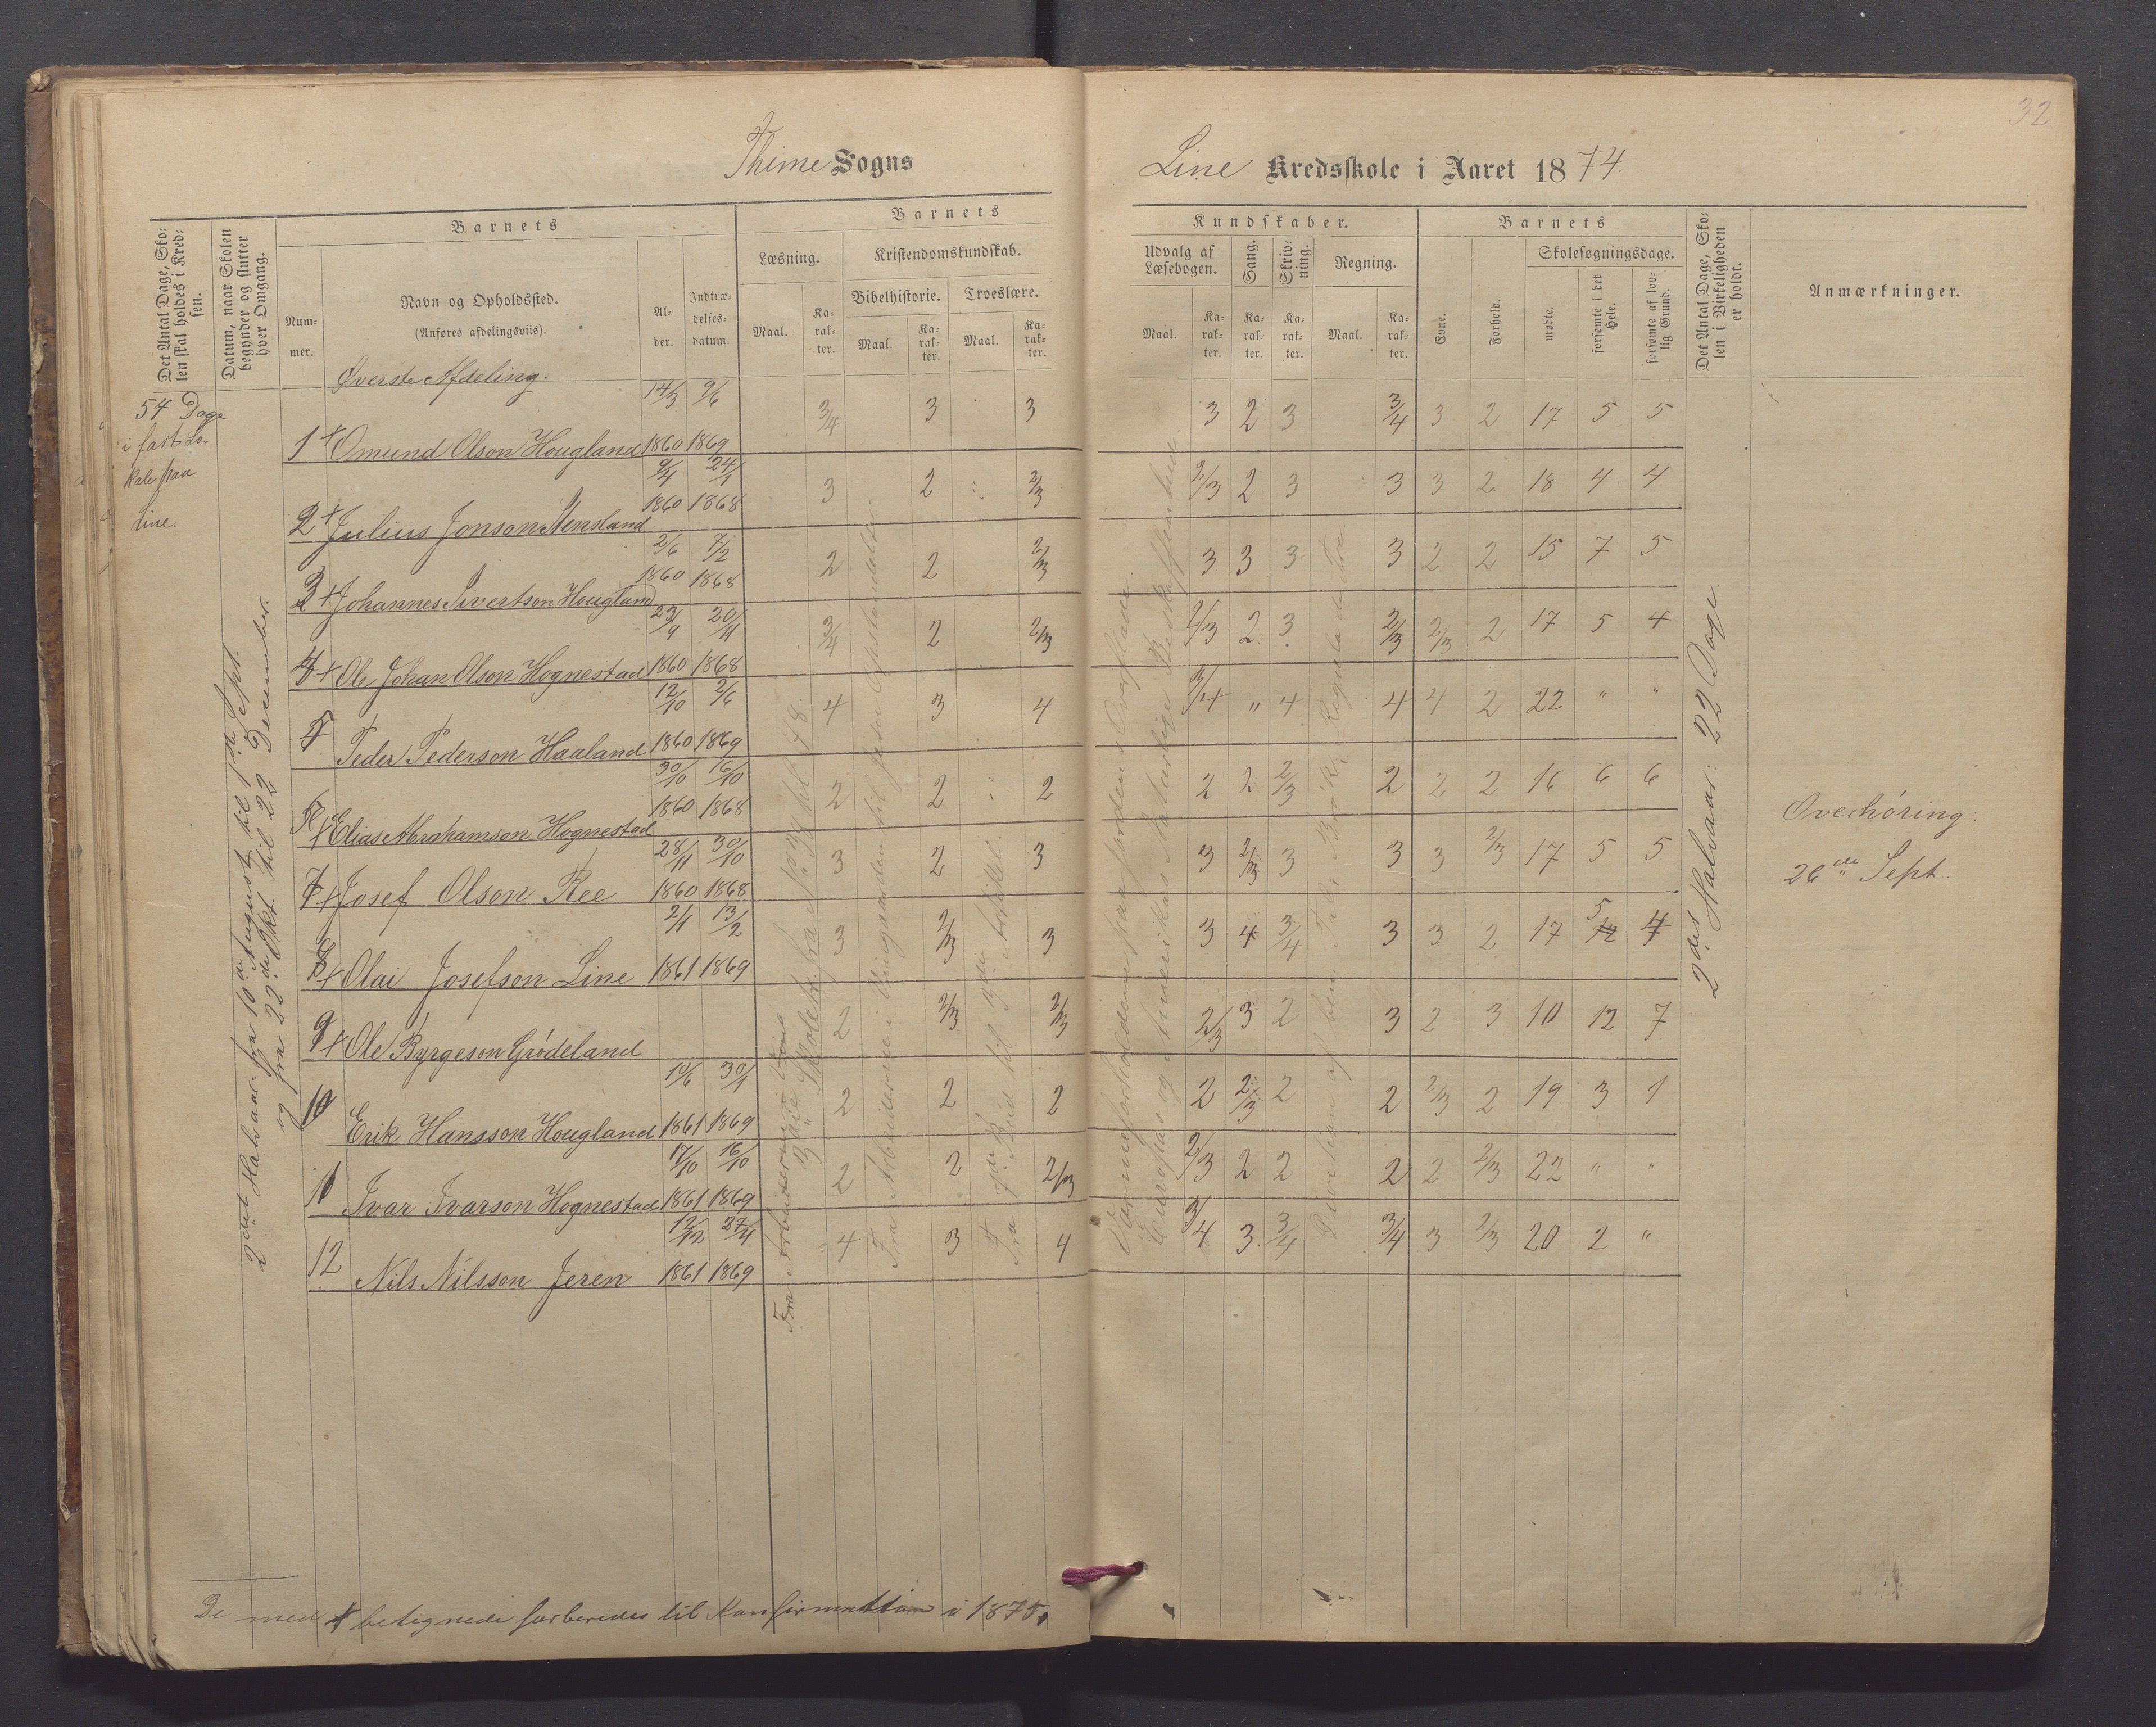 32
Thime Sogns
Line Kredsskole i Aaret 1874.
Det Antal Dage, Skolen skal holdes i Kredsen.
Datum, naar Skolen begynder og slutter hver Omgang.
Barnets
Nummer.
Navn og Opholdssted.
(Anføres afdelingsviis).
Alder.
Indtrædelsesdatum.
Barnets
Læsning.
Kristendomskundskab.
Bibelhistorie.
Troeslære.
Maal.
Karakter.
Maal.
Karakter.
Maal.
Karakter.
Kundskaber.
Udvalg af Læsebogen.
Sang.
Skrivning.
Regning.
Maal.
Karakter.
Karakter.
Karakter.
Maal.
Karakter.
Barnets
Evne.
Forhold.
Skolesøgningsdage.
mødte.
forsømte i det Hele.
forsømte af lovlig Grund.
Det Antal Dage, Skolen i Virkeligheden er holdt.
Anmærkninger.
54 Dage
i fast Lo-
kale paa
Line.
2det Halvaar: fra 10de August til 1ste Sept.
og fra 22de Okt. til 22 December.
Øverste Afdeling.
1 + Omund Olson Hougland 14/3 1860 9/6 1869 3/4 3 3 3 2 3 3/4 3 2 17 5 5
2 + Julius Jonson Stensland 9/4 1860 24/1 1868 3 2 2/3 2/3 2 3 3 3 2 18 4 4
3 + Johannes Sivertson Hougland 2/6 1860 7/2 1868 2 2 2/3 3 3 3 3 2 2 15 7 5
4 + Ole Johan Olson Hognestad 23/9 1860 20/11 1868 3/4 2 2/3 2/3 2 3 2/3 2/3 2 17 5 4
5 Peder Pederson Haaland 12/10 1860 2/6 1869 4 3 4 3/4 " 4 4 4 2 22 " "
6 + Elias Abrahamson Hognestad 30/10 1860 16/10 1868 2 2 2 2 2 2/3 2 2 2 16 6 6
7 + Josef Olson Ree 28/11 1860 30/10 1868 3 2 3 3 2/3 3 3 3 2/3 17 5 5
8 + Olai Josefson Line 2/1 1861 13/2 1869 3 2/3 3 3 4 3/4 3 3 2 17 5 4
9 + Ole Byrgeson Grødeland 2 2/3 2/3 2/3 3 2 3 2 3 10 12 7
10 Erik Hansson Hougland 10/6 1861 30/1 1869 2 2 2 2 2/3 2 2 2/3 2 19 3 1
11 Ivar Ivarson Hognestad 17/10 1861 16/10 1869 2 2 2/3 2/3 2 2 2 2 2/3 22 " "
12 Nils Nilsson Jeren 12/12 1861 27/4 1869 4 3 4 3/4 3 3/4 3/4 3 2/3 20 2 "
Fra Arbeiderne i Viingaarden til Jesu Opstandelse.
Fra 7de Bud til 3die Artikel.
Varmeforholdene paa Jordens Overflade.
Europas og Amerikas naturlige Beskaffenhed.
2det Halvaar: 22 Dage.
Overhøring:
26de Sept.
De med + betegnede forberedes til Konfirmation i 1875.